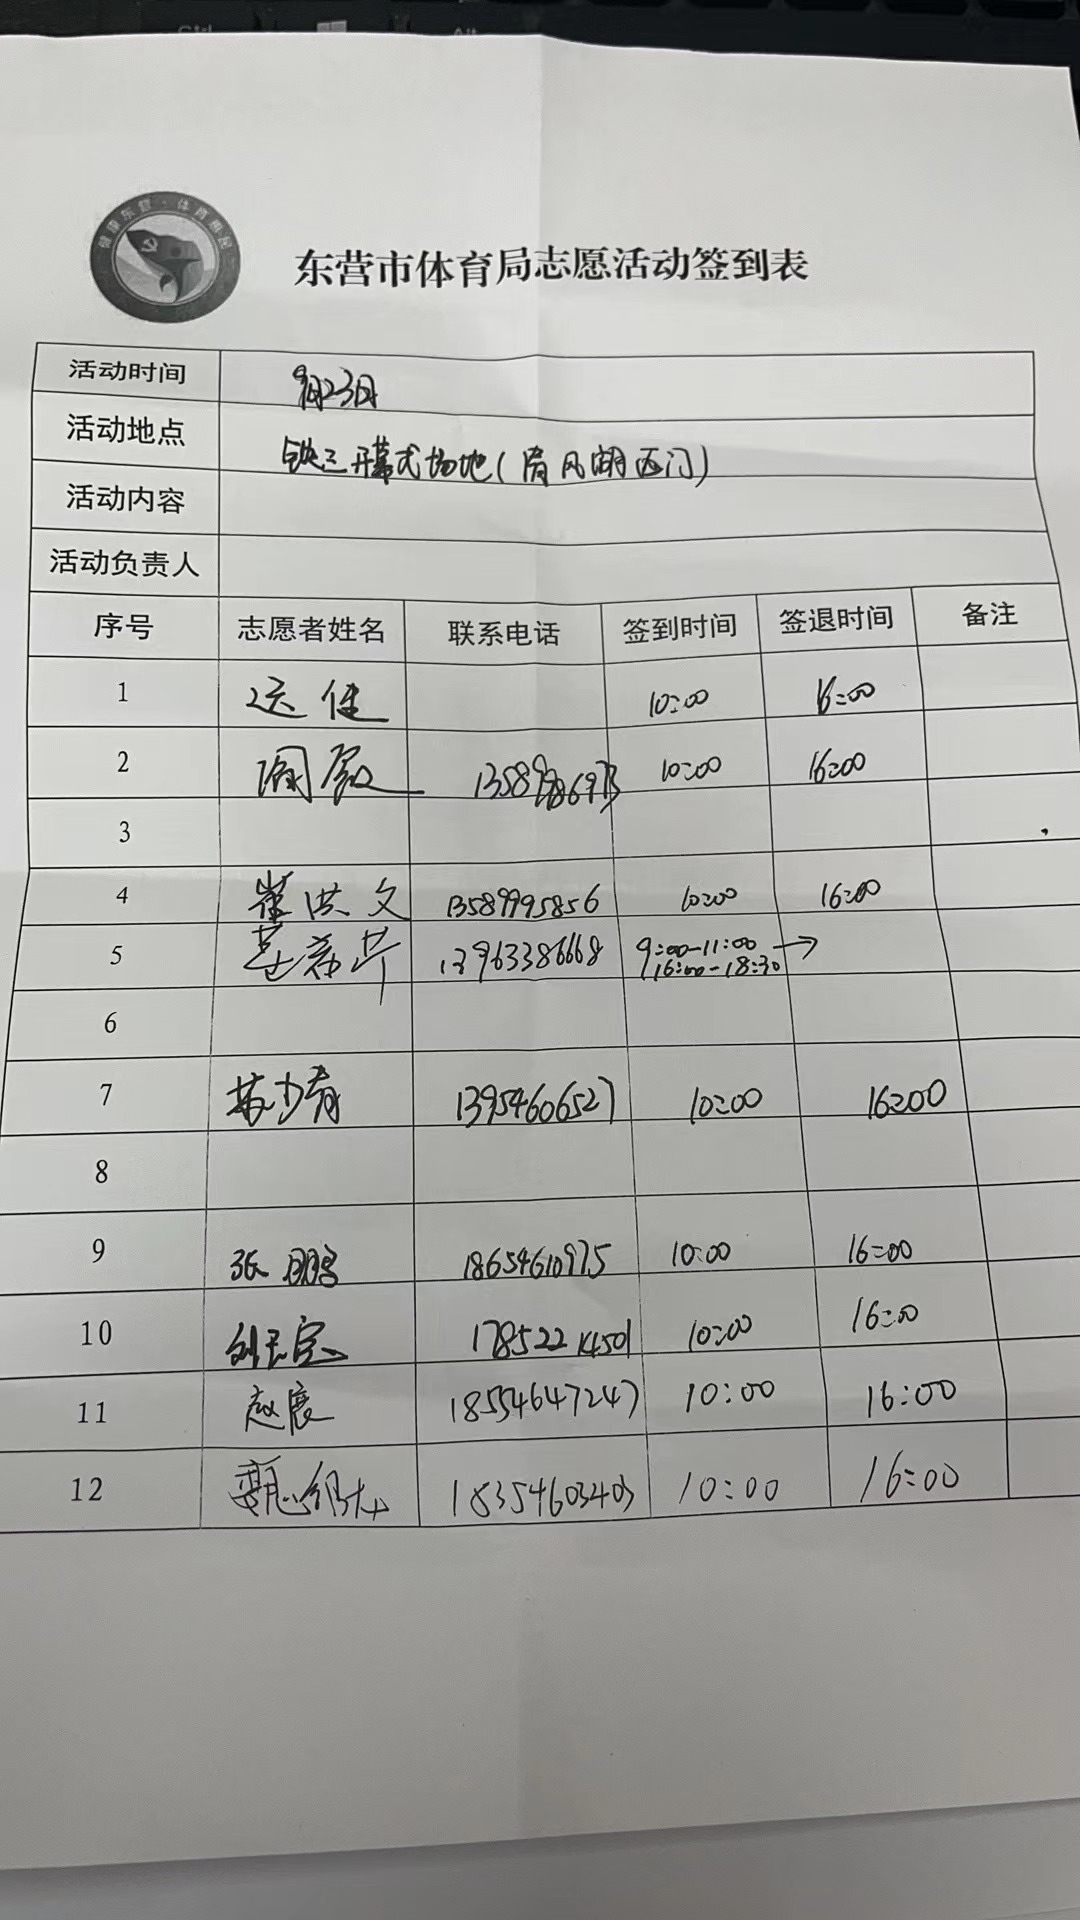 Ctrl Alt
健康东营·体育惠民
东营市体育局志愿活动签到表
活动时间 9月23日
活动地点 铁三开幕式场地(清风湖西门)
活动内容
活动负责人
序号 志愿者姓名 联系电话 签到时间 签退时间 备注
1 10:00 16:00
2 10:00 16:00
3
4 崔洪文 13589995856 10:00 16:00
5 13963386668 9:00-11:00 →
16:00-18:30
6
7 苏少春 13954606527 10:00 16:00
8
9 张鹏 18654610975 10:00 16:00
10 17852214501 10:00 16:00
11 赵震 18554647247 10:00 16:00
12 18354603403 10:00 16:00